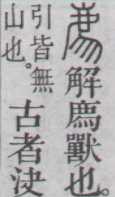 廌解廌獸也。
引皆無
山也。
古者決